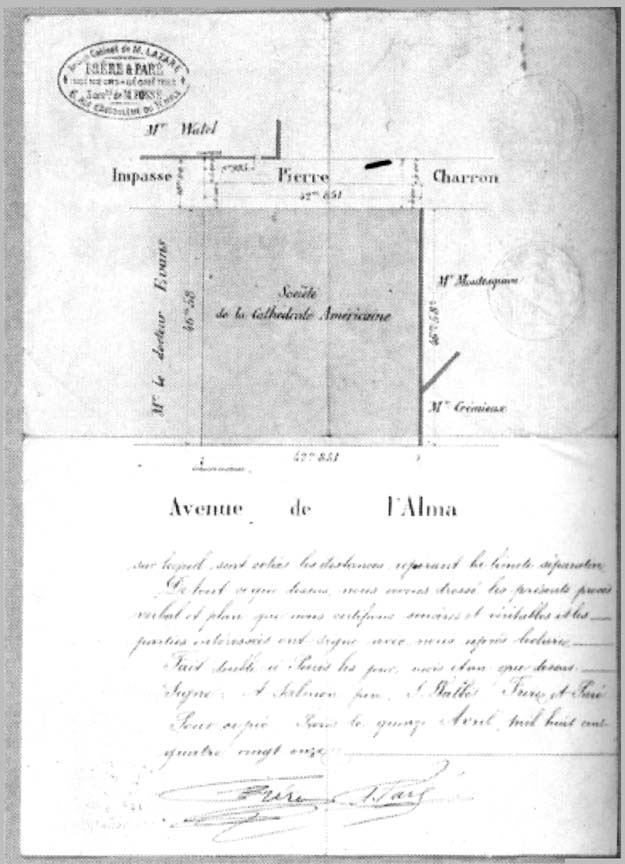 Cabinet de M. LAZARE
FRÈRE & PARÉ
INGÉNIEURS-GÉOMÈTRES
Succrs de M. FOSSE
RUE D'ANGOULÊME DU TEMPLE
Mr Watel
Impasse Pierre Charron
42m 851
Mr le docteur Evans
46m 58
Société
de la Cathédrale Américaine
Mr
46m 58c
Mr Crémieux
42m 851
Avenue de l'Alma
sur lequel sont cotées les distances reperant la limite séparative
De tout ce que dessus, nous avons dressé les présents procès
verbal et plan que nous certifions sincères et véritables et les
parties intéressées ont signé avec nous après lecture
Fait double à Paris les jour, mois et an que dessus
Signé: A Salmon Frère et Paré
Pour copie Paris le quinze Avril mil huit cent
quatre vingt onze
Frère A. Paré